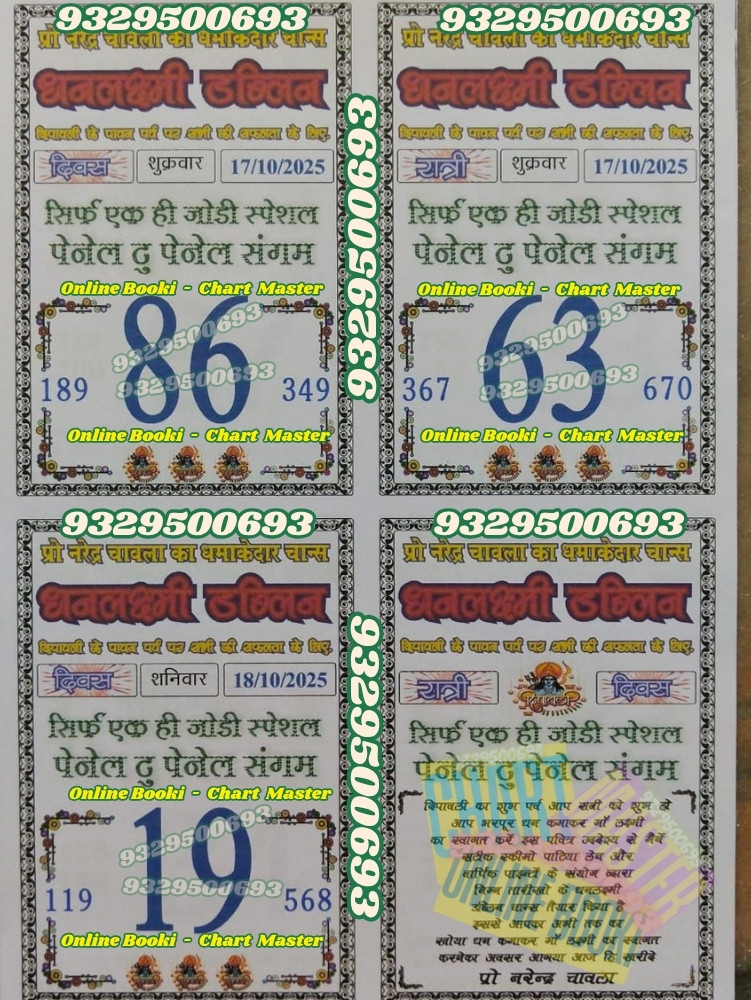 9329500693
प्रो नरेद्र चावला का धमाकेदार चान्स
धनलक्ष्मी डब्लिन
दिपावली के पावन पर्व पर अभी की सफलता के लिए.
दिवस शुक्रवार 17/10/2025
सिर्फ एक ही जोडी स्पेशल
पेनेल टु पेनेल संगम
Online Booki - Chart Master
86
9329500693
9329500693
189 349
Online Booki - Chart Master
9329500693
9329500693
प्रो नरेद्र चावला का धमाकेदार चान्स
धनलक्ष्मी डब्लिन
दिपावली के पावन पर्व पर अभी की सफलता के लिए.
रात्री शुक्रवार 17/10/2025
सिर्फ एक ही जोडी स्पेशल
पेनेल टु पेनेल संगम
Online Booki - Chart Master
63
9329500693
9329500693
367 670
Online Booki - Chart Master
9329500693
प्रो नरेद्र चावला का धमाकेदार चान्स
धनलक्ष्मी डब्लिन
दिपावली के पावन पर्व पर अभी की सफलता के लिए.
दिवस शनिवार 18/10/2025
सिर्फ एक ही जोडी स्पेशल
पेनेल टु पेनेल संगम
Online Booki - Chart Master
19
9329500693
9329500693
119 568
Online Booki - Chart Master
9329500693
9329500693
प्रो नरेद्र चावला का धमाकेदार चान्स
धनलक्ष्मी डब्लिन
दिपावली के पावन पर्व पर अभी की सफलता के लिए.
रात्री दिपावली दिवस
सिर्फ एक ही जोडी स्पेशल
पेनेल टु पेनेल संगम
CHART MASTER
ONLINE BOOKI
दिपावली का शुभ पर्व आप सभी को शुभ हो
आप भरपूर धन कमाकर माँ लक्ष्मी
का स्वागत करें इस पवित्र उद्देश्य से मैंने
सटीक स्कीमो पाठिया लेन और
वार्षिक पाइन्टो के संयोग व्दारा
निम्न तारीखो के धनलक्ष्मी
डब्लिन चान्स तैयार किया है
इससे आपका अभी तक का
खोया धन कमाकर माँ लक्ष्मी का स्वागत
करनेका अवसर आगया आज हि खरीदे
प्रो नरेन्द्र चावला